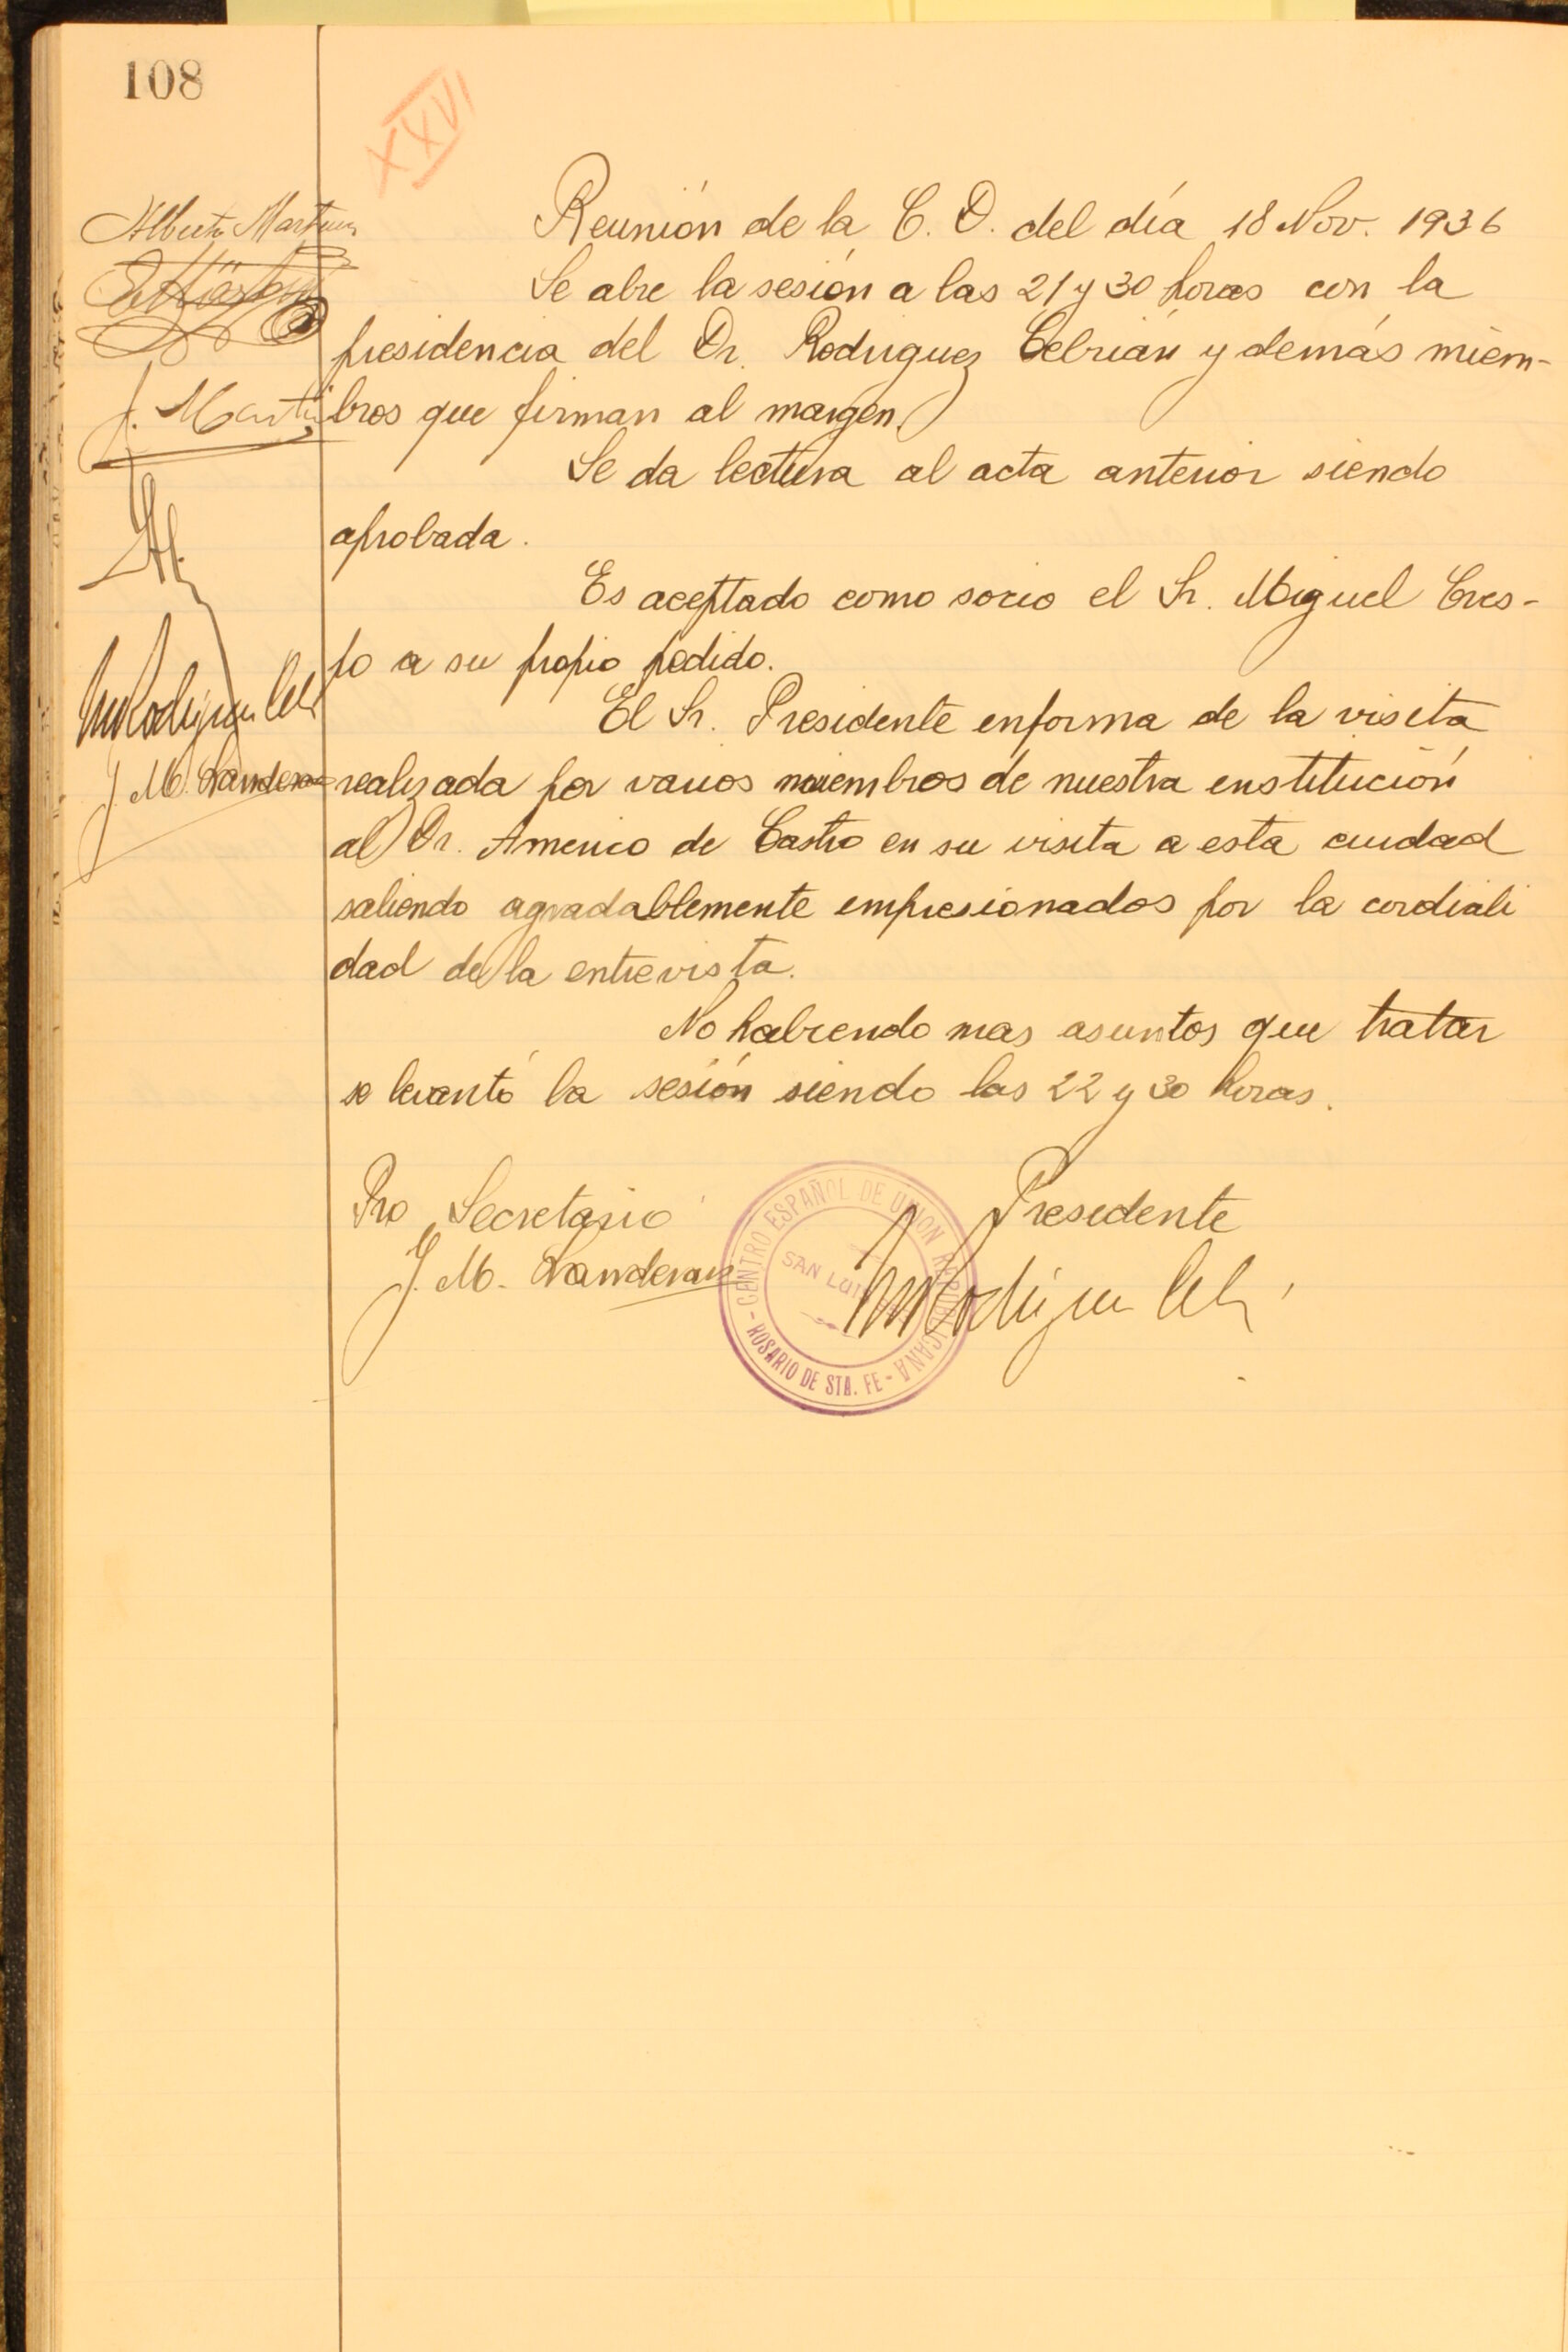 108
XXVI
Alberto Martinez
Reunión de la C. D. del día 18 Nov. 1936
Se abre la sesión a las 21 y 30 horas con la
presidencia del Dr. Rodriguez Cebrián y demás miem-
J. Marti
bros que firman al margen.
Se da lectura al acta anterior siendo
aprobada.
Es aceptado como socio el Sr. Miguel Cres-
po a su propio pedido.
El Sr. Presidente enforma de la visita
J. M. Landeras
realizada por varios miembros de nuestra enstitución
al Dr. Americo de Castro en su visita a esta ciudad
saliendo agradablemente empresionados por la cordiali
dad de la entrevista.
No habiendo mas asuntos que tratar
se levantó la sesión siendo las 22 y 30 horas.
Pro Secretario
Presidente
J. M. Landeras
CENTRO ESPAÑOL DE UNION REPUBLICANA
SAN LUIS
ROSARIO DE STA. FE